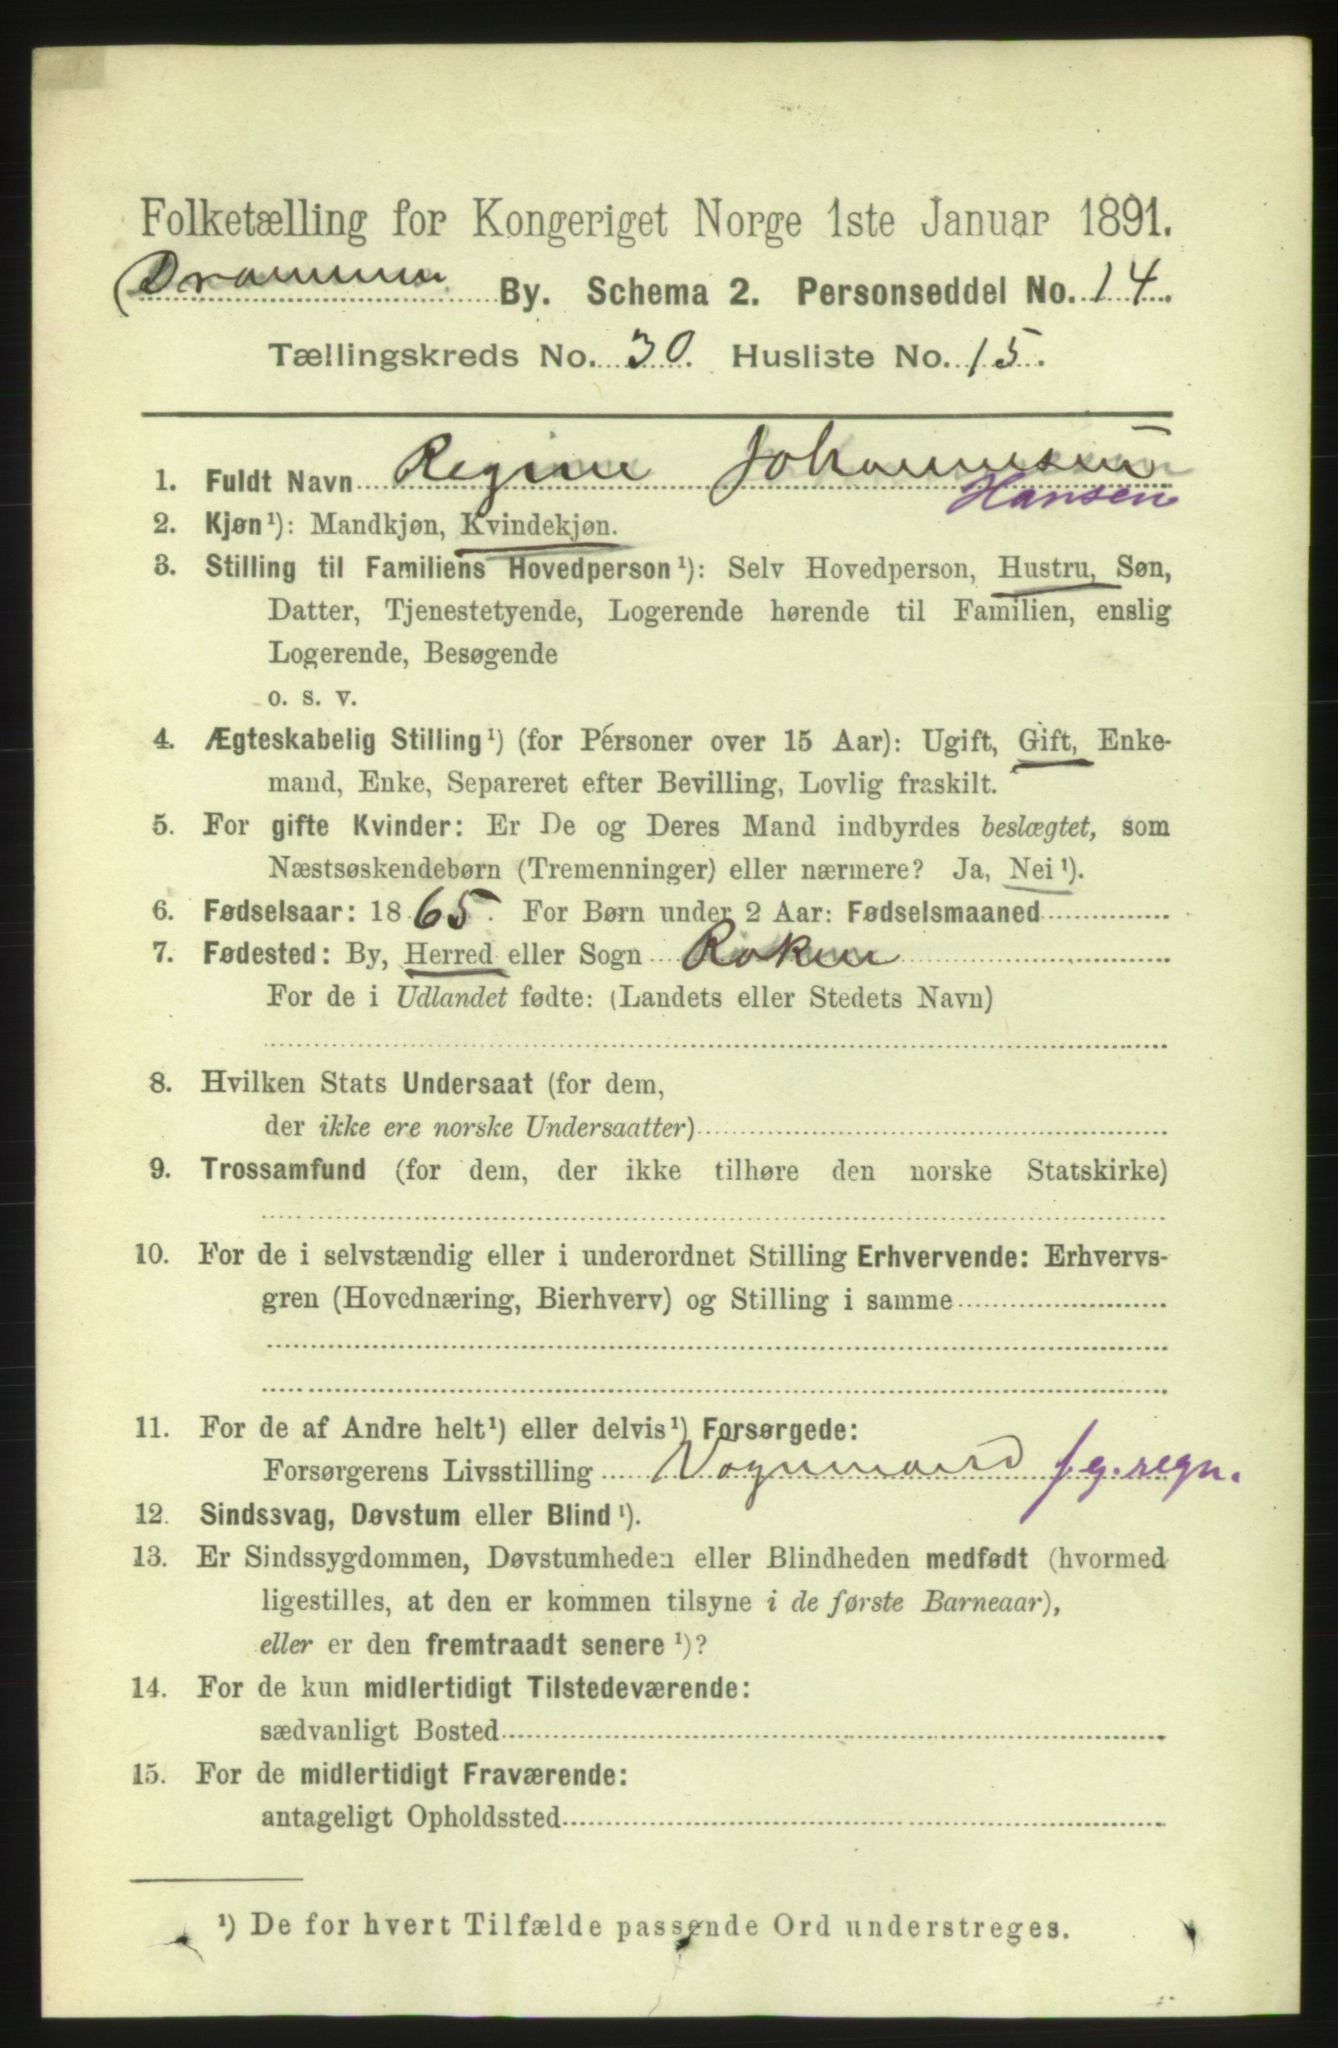 Folketælling for Kongeriget Norge 1ste Januar 1891.
Drammen By. Schema 2. Personseddel No. 14.
Tællingskreds No. 30. Husliste No. 15.
1. Fuldt Navn Regine Johannesen
Hansen
2. Kjøn¹): Mandkjøn, Kvindekjøn.
3. Stilling til Familiens Hovedperson¹): Selv Hovedperson, Hustru, Søn,
Datter, Tjenestetyende, Logerende hørende til Familien, enslig
Logerende, Besøgende
o. s. v.
4. Ægteskabelig Stilling¹) (for Personer over 15 Aar): Ugift, Gift, Enke-
mand, Enke, Separeret efter Bevilling, Lovlig fraskilt.
5. For gifte Kvinder: Er De og Deres Mand indbyrdes beslægtet, som
Næstsøskendebørn (Tremenninger) eller nærmere? Ja, Nei¹).
6. Fødselsaar: 1865. For Børn under 2 Aar: Fødselsmaaned
7. Fødested: By, Herred eller Sogn Røken
For de i Udlandet fødte: (Landets eller Stedets Navn)
8. Hvilken Stats Undersaat (for dem,
der ikke ere norske Undersaatter)
9. Trossamfund (for dem, der ikke tilhøre den norske Statskirke)
10. For de i selvstændig eller i underordnet Stilling Erhvervende: Erhvervs-
gren (Hovednæring, Bierhverv) og Stilling i samme
11. For de af Andre helt¹) eller delvis¹) Forsørgede:
Forsørgerens Livsstilling Vognmand f. g. regn.
12. Sindssvag, Døvstum eller Blind¹).
13. Er Sindssygdommen, Døvstumheden eller Blindheden medfødt (hvormed
ligestilles, at den er kommen tilsyne i de første Barneaar),
eller er den fremtraadt senere¹)?
14. For de kun midlertidigt Tilstedeværende:
sædvanligt Bosted
15. For de midlertidigt Fraværende:
antageligt Opholdssted
¹) De for hvert Tilfælde passende Ord understreges.